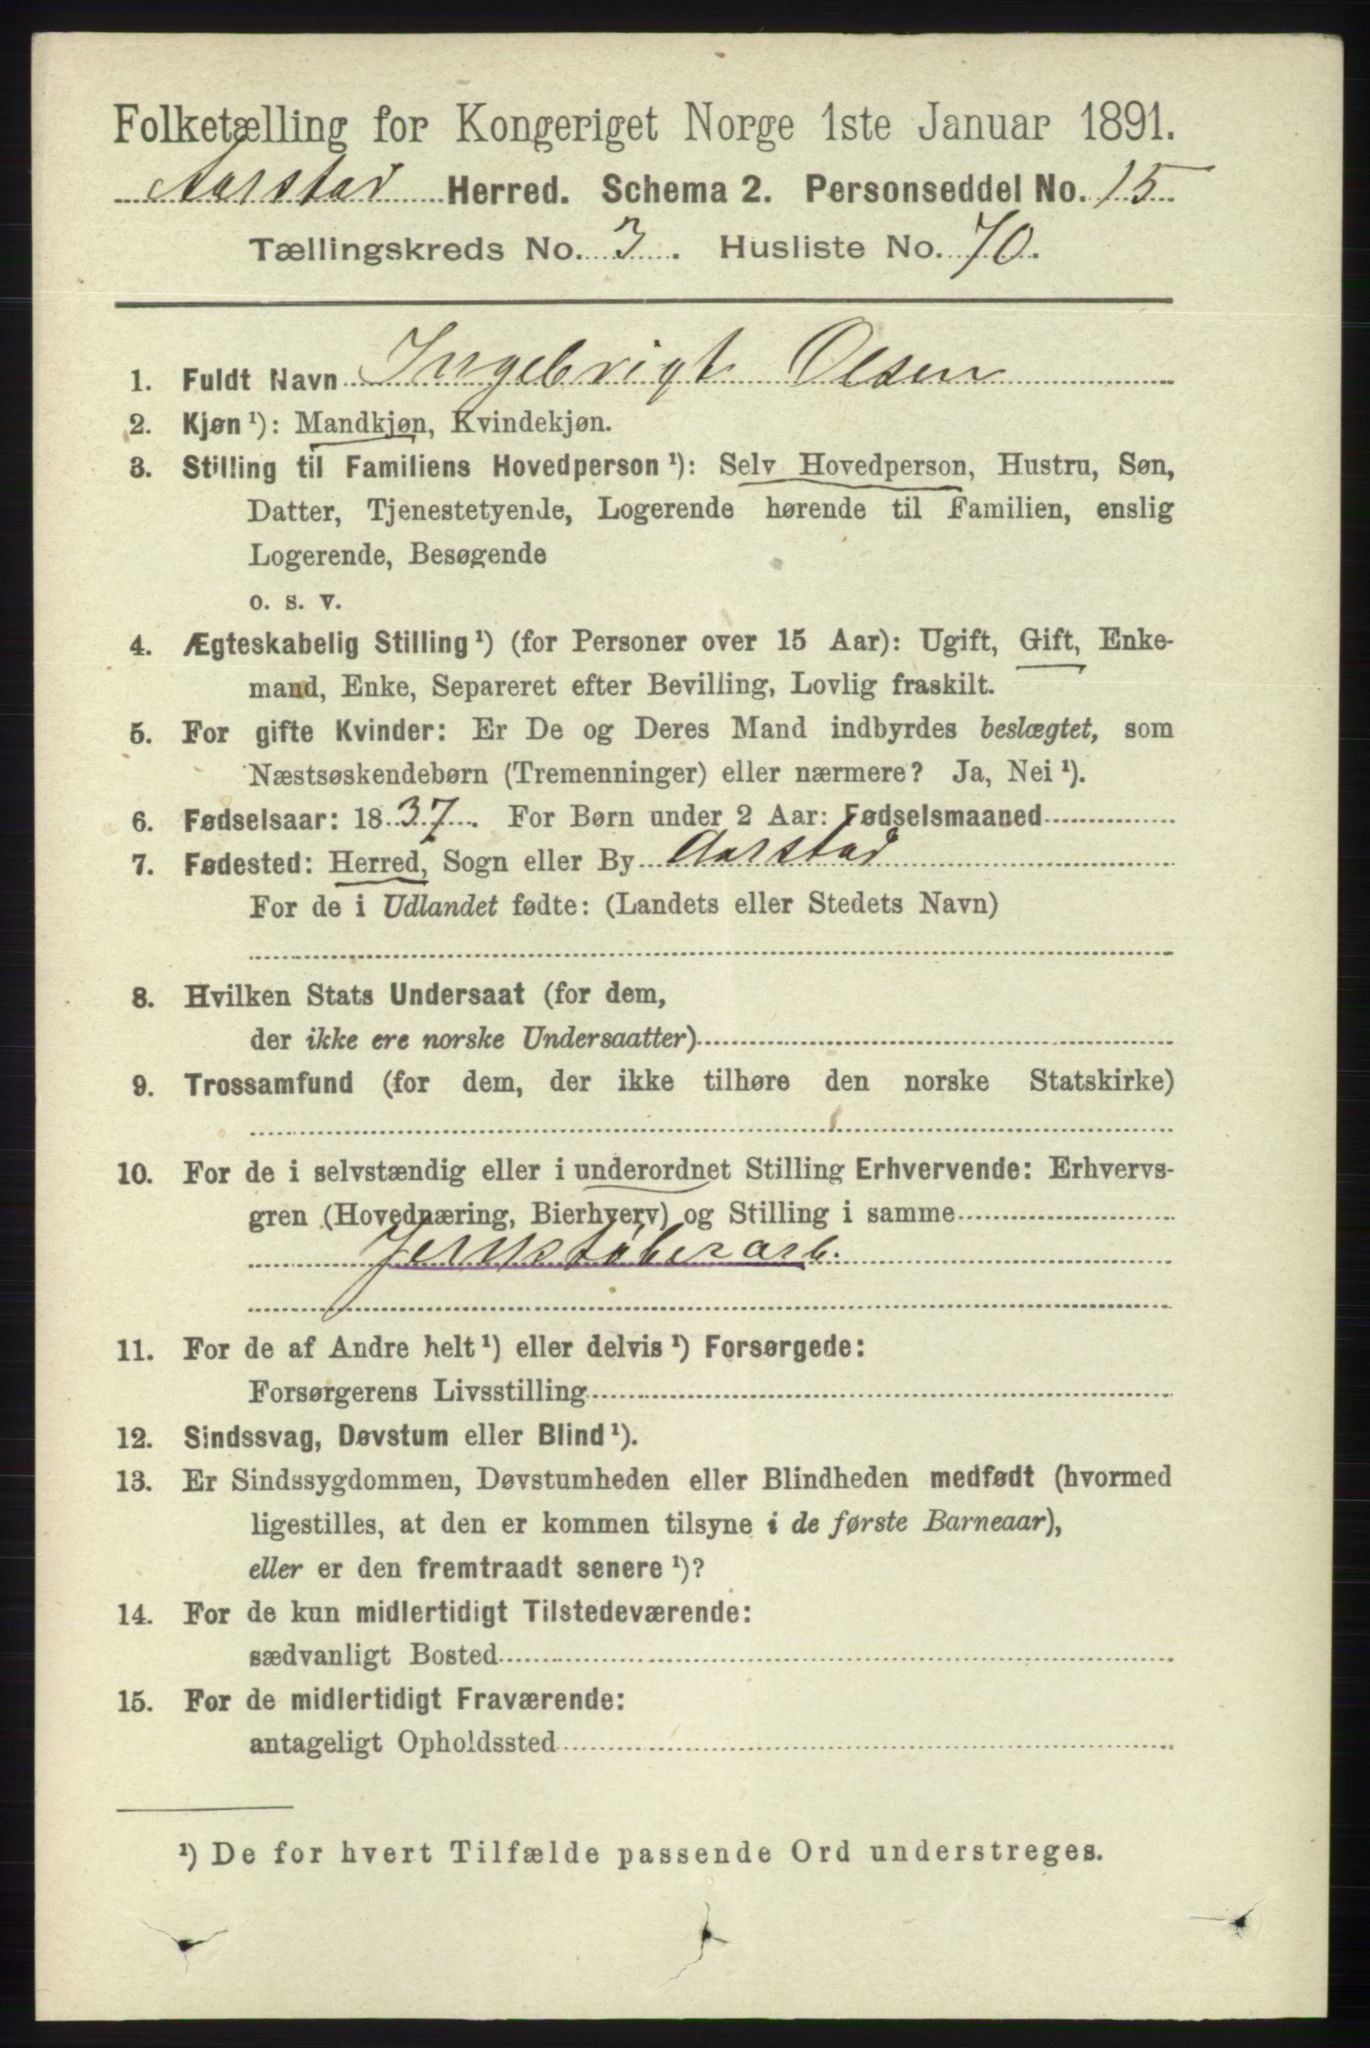 Folketælling for Kongeriget Norge 1ste Januar 1891.
Aarstad Herred. Schema 2. Personseddel No. 15
Tællingskreds No. 3. Husliste No. 70.
1. Fuldt Navn Ingebrigt Olsen
2. Kjøn¹): Mandkjøn, Kvindekjøn.
3. Stilling til Familiens Hovedperson¹): Selv Hovedperson, Hustru, Søn,
Datter, Tjenestetyende, Logerende hørende til Familien, enslig
Logerende, Besøgende
o. s. v.
4. Ægteskabelig Stilling¹) (for Personer over 15 Aar): Ugift, Gift, Enke-
mand, Enke, Separeret efter Bevilling, Lovlig fraskilt.
5. For gifte Kvinder: Er De og Deres Mand indbyrdes beslægtet, som
Næstsøskendebørn (Tremenninger) eller nærmere? Ja, Nei¹).
6. Fødselsaar: 1837. For Børn under 2 Aar: Fødselsmaaned
7. Fødested: Herred, Sogn eller By Aarstad
For de i Udlandet fødte: (Landets eller Stedets Navn)
8. Hvilken Stats Undersaat (for dem,
der ikke ere norske Undersaatter)
9. Trossamfund (for dem, der ikke tilhøre den norske Statskirke)
10. For de i selvstændig eller i underordnet Stilling Erhvervende: Erhvervs-
gren (Hovednæring, Bierhverv) og Stilling i samme
Jernstøberarb.
11. For de af Andre helt¹) eller delvis¹) Forsørgede:
Forsørgerens Livsstilling
12. Sindssvag, Døvstum eller Blind¹).
13. Er Sindssygdommen, Døvstumheden eller Blindheden medfødt (hvormed
ligestilles, at den er kommen tilsyne i de første Barneaar),
eller er den fremtraadt senere¹)?
14. For de kun midlertidigt Tilstedeværende:
sædvanligt Bosted
15. For de midlertidigt Fraværende:
antageligt Opholdssted
¹) De for hvert Tilfælde passende Ord understreges.